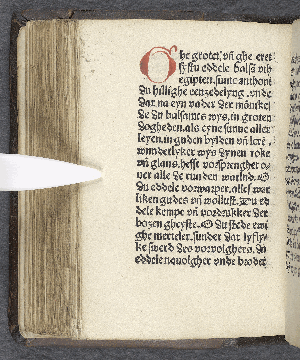 Ghe grotet vñ ghe eret
systu eddele balsā vth
egipten. sunte anthoni
Du hillighe eenzedelyng. vnde
dar na eyn vader der mönnike
De du balsames wys, in groten
dogheden, als eyne sunne aller
leyen, in guden bylden vñ lere,
wunderlyker wys dynen roke
vñ glans, heffst vorsprenghet o-
uer alle de runden warlnd. O
Du eddele vorwarper, alles war
liken gudes vñ wollust. Du ed
dele kempe vñ vordrukker der
bozen gheyste. O du stede ewi
ghe merteler, sunder dat lyfly-
ke swerd des vorvolghers. Du
eddele nauolgher vnde broder